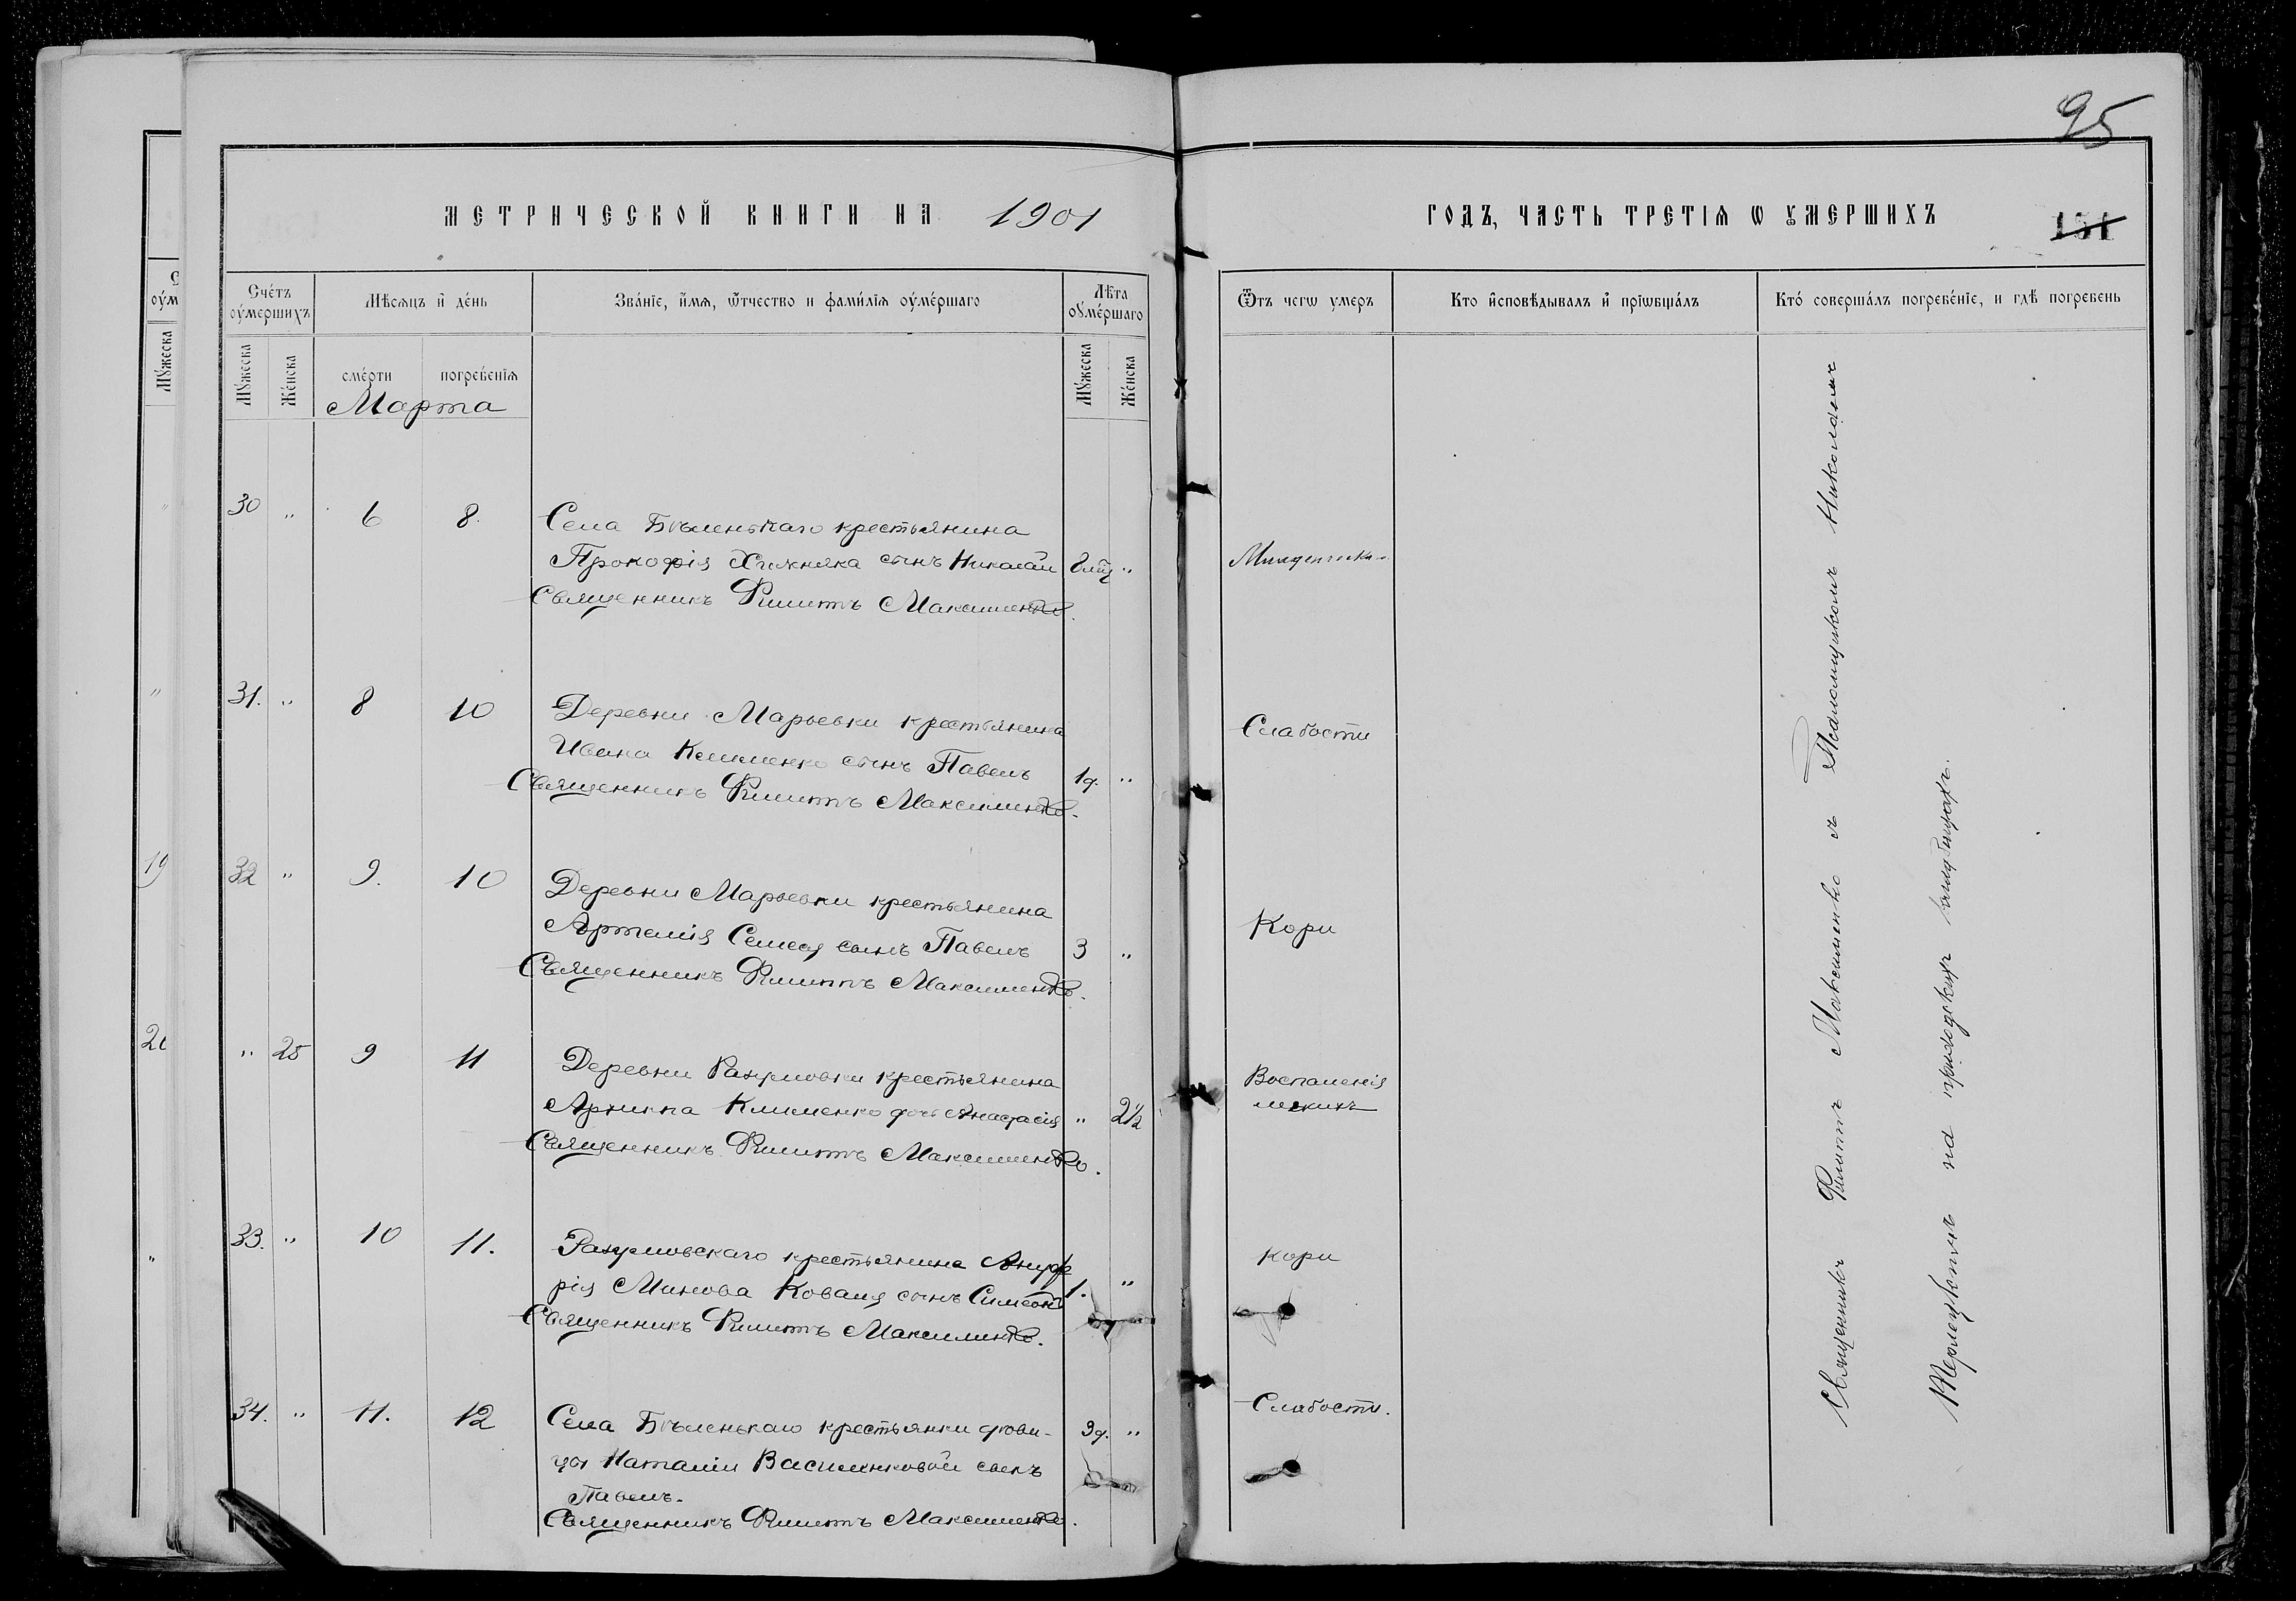 95
МЕТРИЧЕСКОЙ КНИГИ НА 1901
ГОДЪ, ЧАСТЬ ТРЕТІЯ Ѡ УМЕРШИХЪ
151
Счётъ оумершихъ
Мѣсяцъ и день
Званіе, имя, ѿтчество и фамилія оумершаго
Лѣта оумершаго
Ѿтъ чегѡ умеръ
Кто исповѣдывалъ и пріѡбщалъ
Кто совершалъ погребеніе, и гдѣ погребенъ
Мужеска
Женска
смерти
погребенія
Мужеска
Женска
Марта
30 " 6 8.
Села Бѣленькаго крестьянина
Прокофія Хижняка сынъ Николай "
Священникъ Филиппъ Максименко.
31. " 8 10
Деревни Марьевки крестьянина
Ивана Клименко сынъ Павелъ 1г. "
Слабости
Священникъ Филиппъ Максименко.
32 " 9. 10
Деревни Марьевки крестьянина
Артемія сынъ Павелъ 3 "
Кори
Священникъ Филиппъ Максименко.
" 25 9 11
Деревни Разумовки крестьянина
Архипа Клименко дочь Анастасія " 2½
Воспаленія
легкихъ
Священникъ Филиппъ Максименко.
33. " 10 11.
Разумовскаго крестьянина Ануф
рія Минова Коваля сынъ Симеонъ 1. "
Кори
Священникъ Филиппъ Максименко.
34. " 11. 12
Села Бѣленькаго крестьянки дѣви-
цы Наталіи Василенковой сынъ 3д. "
Слабости.
Павелъ.
Священникъ Филиппъ Максименко.
Священникъ Филиппъ Максименко съ Псаломщикомъ Николаемъ
на приходскихъ кладбищахъ.